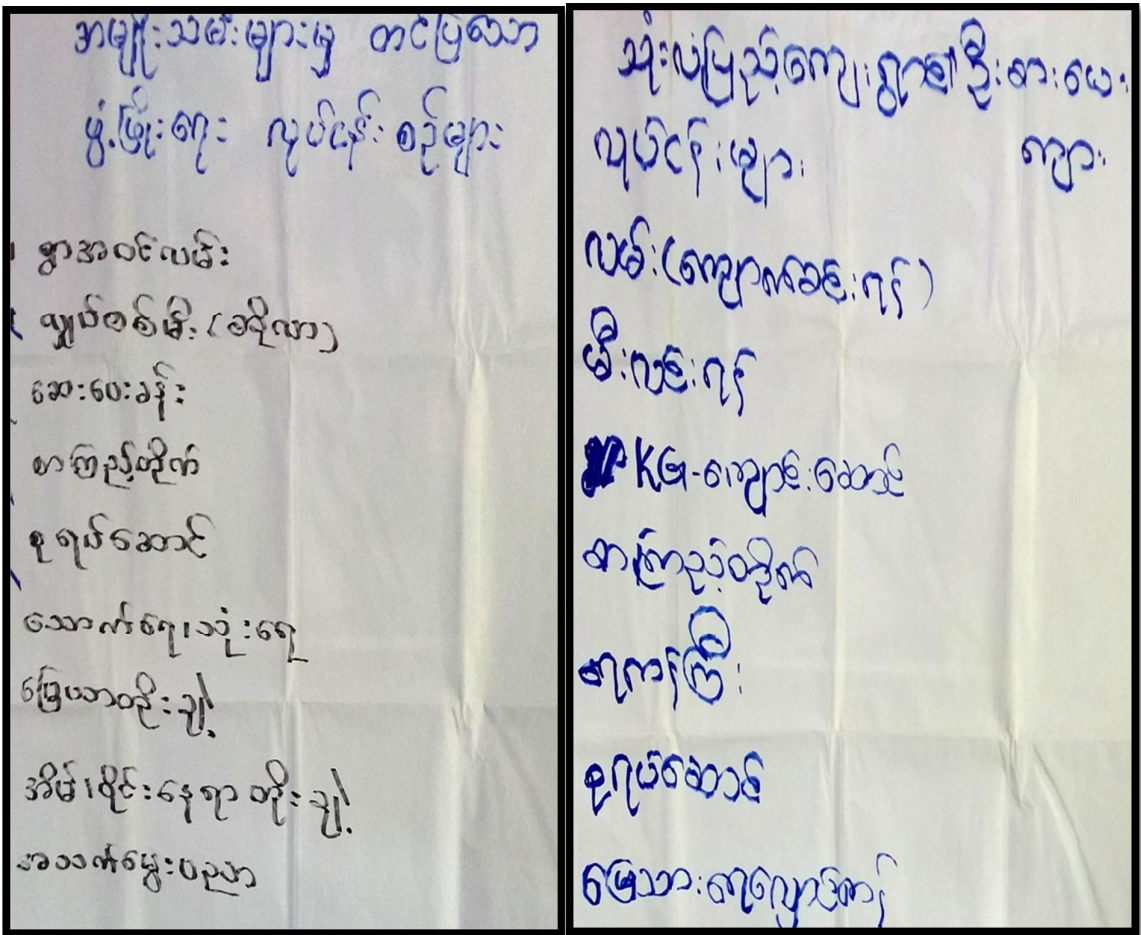 အမျိုးသမီးများမှ တင်ပြသော
ဖွံ့ဖြိုးရေး လုပ်ငန်းစဉ်များ
ရွာအဝင်လမ်း
လျှပ်စစ်မီး (ဆိုလာ)
ဆေးပေးခန်း
စာကြည့်တိုက်
စုရပ်ဆောင်
သောက်ရေ၊သုံးရေ
မြေယာတိုးချဲ့
အိမ်၊ဝိုင်းနေရာ တိုးချဲ့
အသက်မွေးပညာ
သုံးလုံပြည့်ကျေးရွာ၏ ဦးစားပေး
လုပ်ငန်းများ ကျား
လမ်း (ကျောက်ခင်းရန်)
မီးလင်းရန်
KG-ကျောင်းဆောင်
စာကြည့်တိုက်
ရေကန်ကြီး
စုရပ်ဆောင်
မြေသားရေလှောင်ကန်